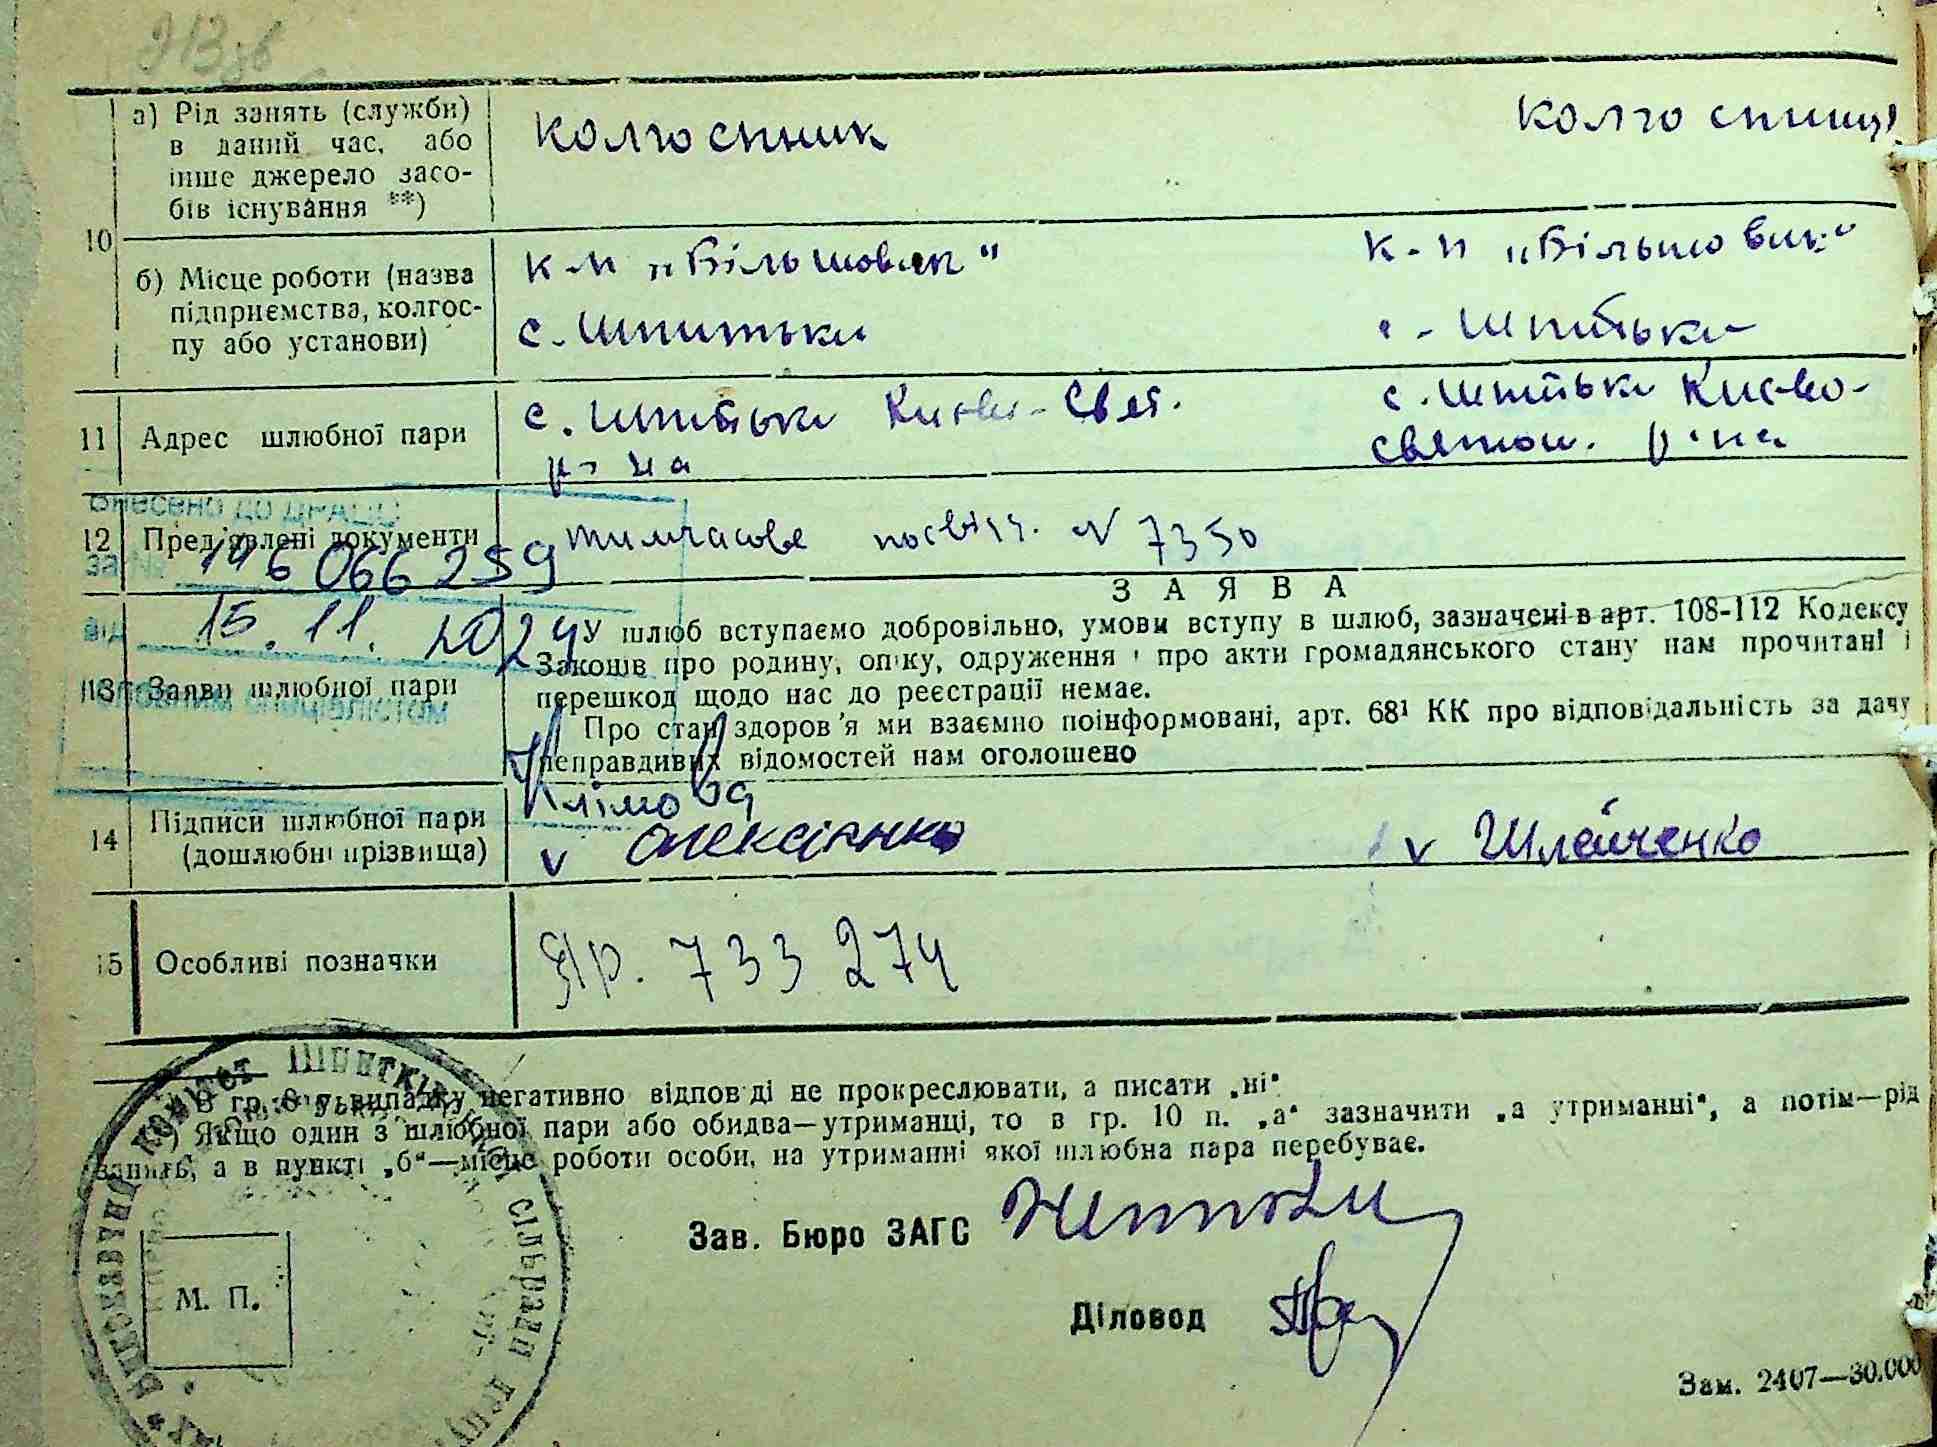 а) Рід занять (служби)
в даний час, або
інше джерело засо-
бів існування **)
колгоспник
колгоспниця
10
б) Місце роботи (назва
підприємства, колгос-
пу або установи)
к-п „Більшовик"
с. Шпитьки
к-п „Більшовик"
с. Шпитьки
11 Адрес шлюбної пари
с. Шпитьки Києво-Свят.
р-на
с. Шпитьки Києво-
Святош. р-на
Внесено до ДРАЦС
12 Пред'явлені документи
тимчасове посвідч. N 7350
за №
146066259
від 15.11.2024
ЗАЯВА
13 Заяви шлюбної пари
У шлюб вступаємо добровільно, умови вступу в шлюб, зазначені в арт. 108-112 Кодексу
Законів про родину, опіку, одруження і про акти громадянського стану нам прочитані і
перешкод щодо нас до реєстрації немає.
Про стан здоров'я ми взаємно поінформовані, арт. 68¹ КК про відповідальність за дачу
неправдивих відомостей нам оголошено
Клімова
14 Підписи шлюбної пари
(дошлюбні прізвища)
v Олексієнко
v Шлейченко
15 Особливі позначки
Яр. 733274
В гр. 8 у випадку негативно відповіді не прокреслювати, а писати „ні"
) Якщо один з шлюбної пари або обидва—утриманці, то в гр. 10 п. „а" зазначити „а утриманні", а потім—рід
занять, а в пункті „б"—місце роботи особи, на утриманні якої шлюбна пара перебуває.
Зав. Бюро ЗАГС
М. П.
Діловод
Зам. 2407—30.000
Виконавчий комітет Шпитківської сільради